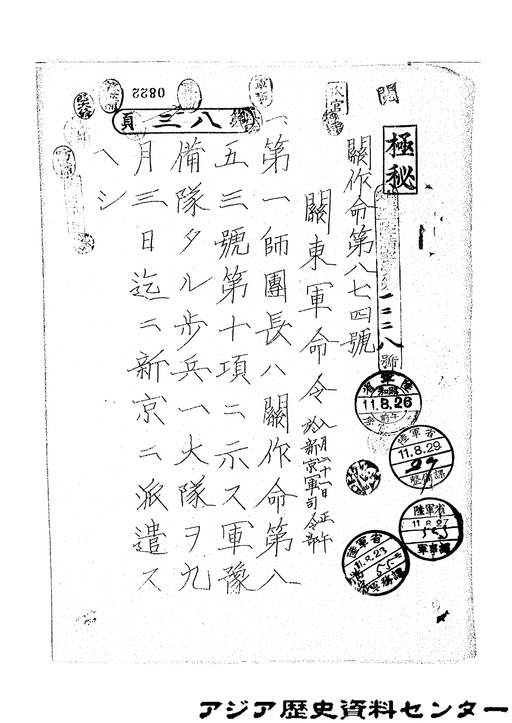 極秘
關作命第八七四號
關東軍命令
八月二十一日正午
於新京軍司令部
一、第一師團長ハ關作命第八
五三號第十項ニ示ス軍豫
備隊タル步兵一大隊ヲ九
月三日迄ニ新京ニ派遣ス
ヘシ
閲
一二三八號
陸軍省
11.8.26
前午
陸軍省
11.8.29
整備課
陸軍省
11.8.27
軍事課
陸軍省
11.8.23
0822
八三頁
アジア歴史資料センター